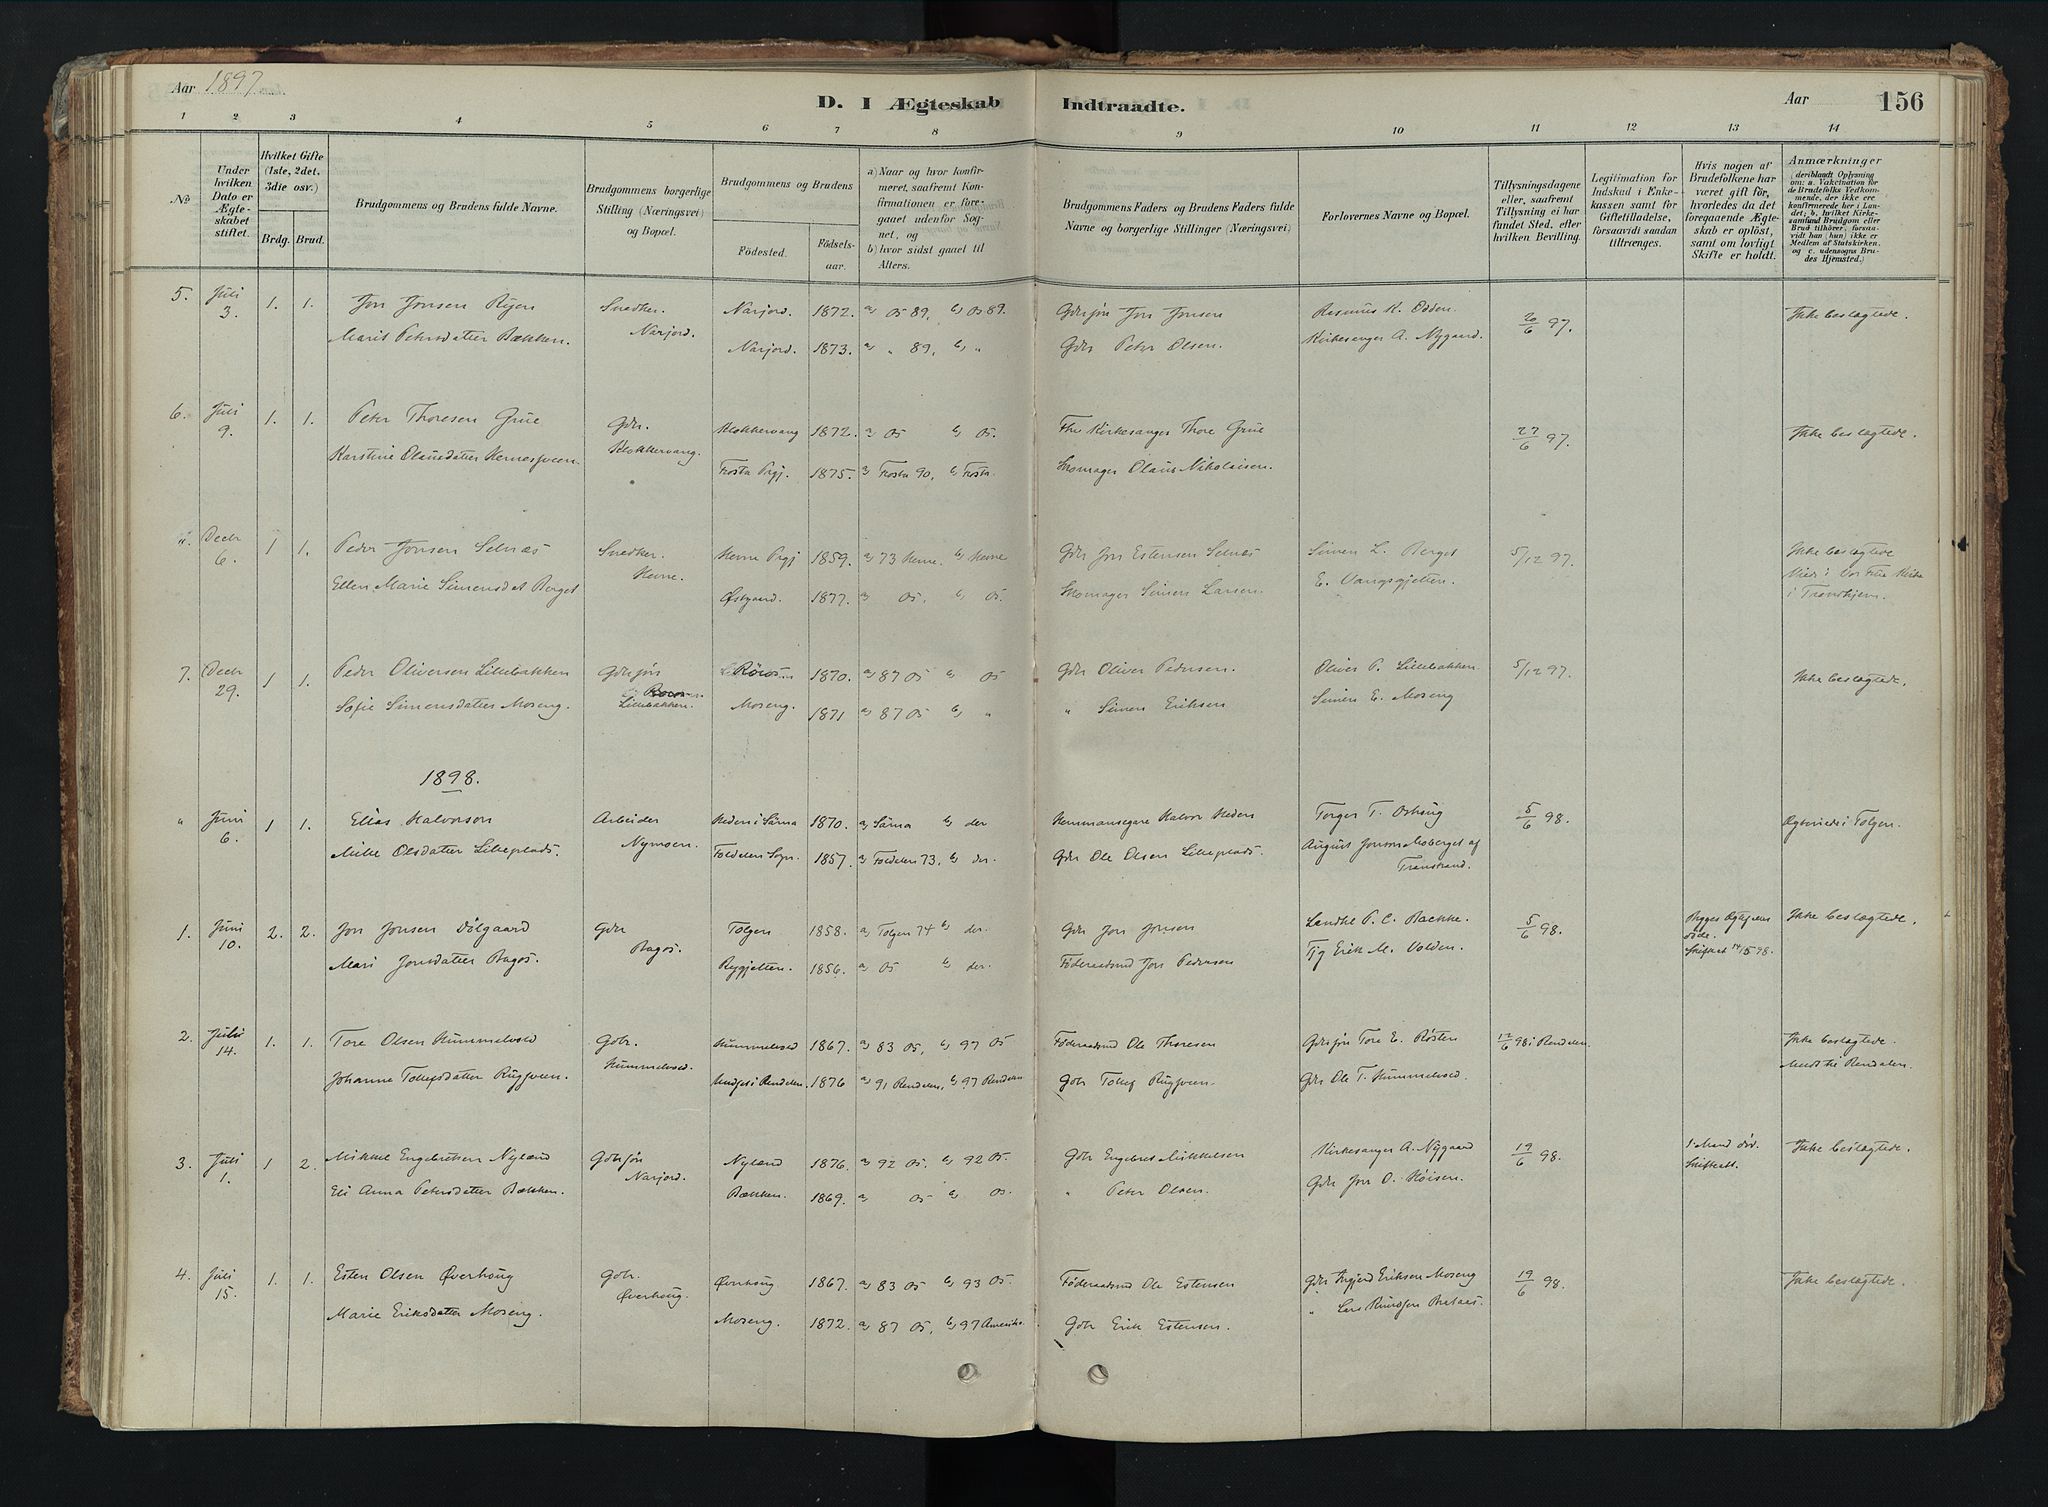 Aar 1897
D. I Ægteskab Indtraadte.
Aar 156
1 2 3 4 5 6 7 8 9 10 11 12 13 14
No
Under hvilken Dato er Ægteskabet stiftet.
Hvilket Gifte (1ste, 2det, 3die osv.)
Brdg. Brud.
Brudgommens og Brudens fulde Navne.
Brudgommens borgerlige Stilling (Næringsvei) og Bopæl.
Brudgommens og Brudens
Födested. Födselsaar.
a) Naar og hvor konfirmeret, saafremt Konfirmationen er foregaaet udenfor Sognet, og
b) hvor sidst gaaet til Alters.
Brudgommens Faders og Brudens Faders fulde Navne og borgerlige Stillinger (Næringsvei)
Forlovernes Navne og Bopæl.
Tillysningsdagene eller, saafremt Tillysning ei har fundet Sted, efter hvilken Bevilling.
Legitimation for Indskud i Enkekassen samt for Giftetilladelse, forsaavidt saadan tiltrænges.
Hvis nogen af Brudefolkene har været gift för, hvorledes da det foregaaende Ægteskab er oplöst, samt om lovligt Skifte er holdt.
Anmærkninger (deriblandt Oplysning om: a. Vakcination for de Brudefolks Vedkommende, der ikke ere konfirmerede her i Landet; b. hvilket Kirkesamfund Brudgom eller Brud tilhörer, forsaavidt han (hun) ikke er Medlem af Statskirken, og c. udensogns Brudes Hjemsted.)
5. Juli 3. 1. 1. Jon Jonsen Ryen Snedker. Narjord. 1872. a, Os 89, b, Os 89. Gdrsøn Jon Jonsen Rasmus K. Odden 20/6 97. Ikke beslægtede.
Marit Petersdatter Bækken. Narjord. Narjord. 1873. a, " 89, b, " Gdr Peter Olsen. Kirkesanger A. Nygaard.
6. Juli 9. 1. 1. Peter Thoresen Grue Gdr. Klokkervang 1872. a, Os b, Os. Fhv Kirkesanger Thore Grue 27/6 97. Ikke beslægtede.
Karstine Olausdatter Klokkervang. Frosta Prgj. 1875. a, Frosta 90, b, Frosta. Skomager Olaus Nikolaisen.
". Decbr 6. 1 1. Peder Jonsen Selnæs Snedker. Hevne Prgj 1859. a, 73 Hevne. b, Hevne Gdr Jon Estensen Selnæs Simen L. Berget 5/12 97. Ikke beslægtede
Ellen Marie Simensdat Berget Hevne. Østgaard. 1877. a, Os, b, Os. Skomager Simen Larsen. E. Vangsgjetten. Viet i Vor Frue Kirke
i Trondhjem.
7. Decbr 29. 1 1. Peder Oliversen Lillebakken Gdrsøn Röros 1870. a, 87 Os b, Os Gdr Oliver Pedersen. Oliver P. Lillebakken 5/12 97. Ikke beslægtede.
Sofie Simensdatter Moseng. Lillebakken. Moseng. 1871 a, 87 Os b, " " Simen Eriksen Simen E. Moseng
1898.
" Juni 6. 1 1. Elias Halvorson Arbeider Heden i Särna 1870. a, Särna b, der Hemmansegare Halvor Heden Torger T. 5/6 98. Ægteviede i Tolgen.
Olsdatter Lilleplads. Nymoen. Foldalen Sogn. 1857. a, Foldalen 73, b, der. Gdr Ole Olsen Lilleplads. August Jonson Moberget af
Transtrand.
1. Juni 10. 2. 2. Jon Jonsen Dölgaard Gdr Tolgen 1858. a, Tolgen 74 b, der. Gdr Jon Jonsen Landh. P. C. Backke. 5/6 98. Begges Ægtefæller döde. Skiftet 14/5 98. Ikke beslægtede.
Mari Jonsdatter Bagos. Bagos. Rygjetten. 1856. a, Os b, der. Föderaadsmd Jon Pedersen Tjg Erik M. Volden.
2. Juli 14. 1. 1. Tore Olsen Hummelvold Gbr. Hummelvold 1867. a, 83 Os, b, 97 Os Föderaadsmd Ole Thoresen Gdrsøn Tore E. Røsten 12/6 98 i Rendalen. Ikke beslægtede.
Johanne Tollefsdatter Rugsveen. Hummelvold. i Rendalen. 1876 a, 91 Rendalen, b, 97 Rendalen Gbr Tollef Rugsveen. Gdr Ole T. Hummelvold. Rendalen.
3. Juli 1. 1 2. Mikkel Engebretsen Nyland Gbrsøn Nyland 1876. a, 92 Os, b, 92 Os. Gbr Engebret Mikkelsen Kirkesanger A. Nygaard 19/6 98. 1 Mand död. Skiftet. Ikke beslægtede.
Eli Anna Petersdatter Bækken. Narjord. Bækken. 1869. a, Os b, Os. " Peter Olsen. Gdr Jon O. Høisen.
4. Juli 15. 1. 1. Esten Olsen Øverhoug Gbr. Øverhoug 1867. a, 83 Os b, 93 Os. Föderaadsmd Ole Estensen Gdr Eriksen Moseng 19/6 98. Ikke beslægtede.
Marie Eriksdatter Moseng. Øverhoug. Moseng. 1872. a, 87 Os, b, 97 Amerika. Gbr Erik Estensen. " Lars